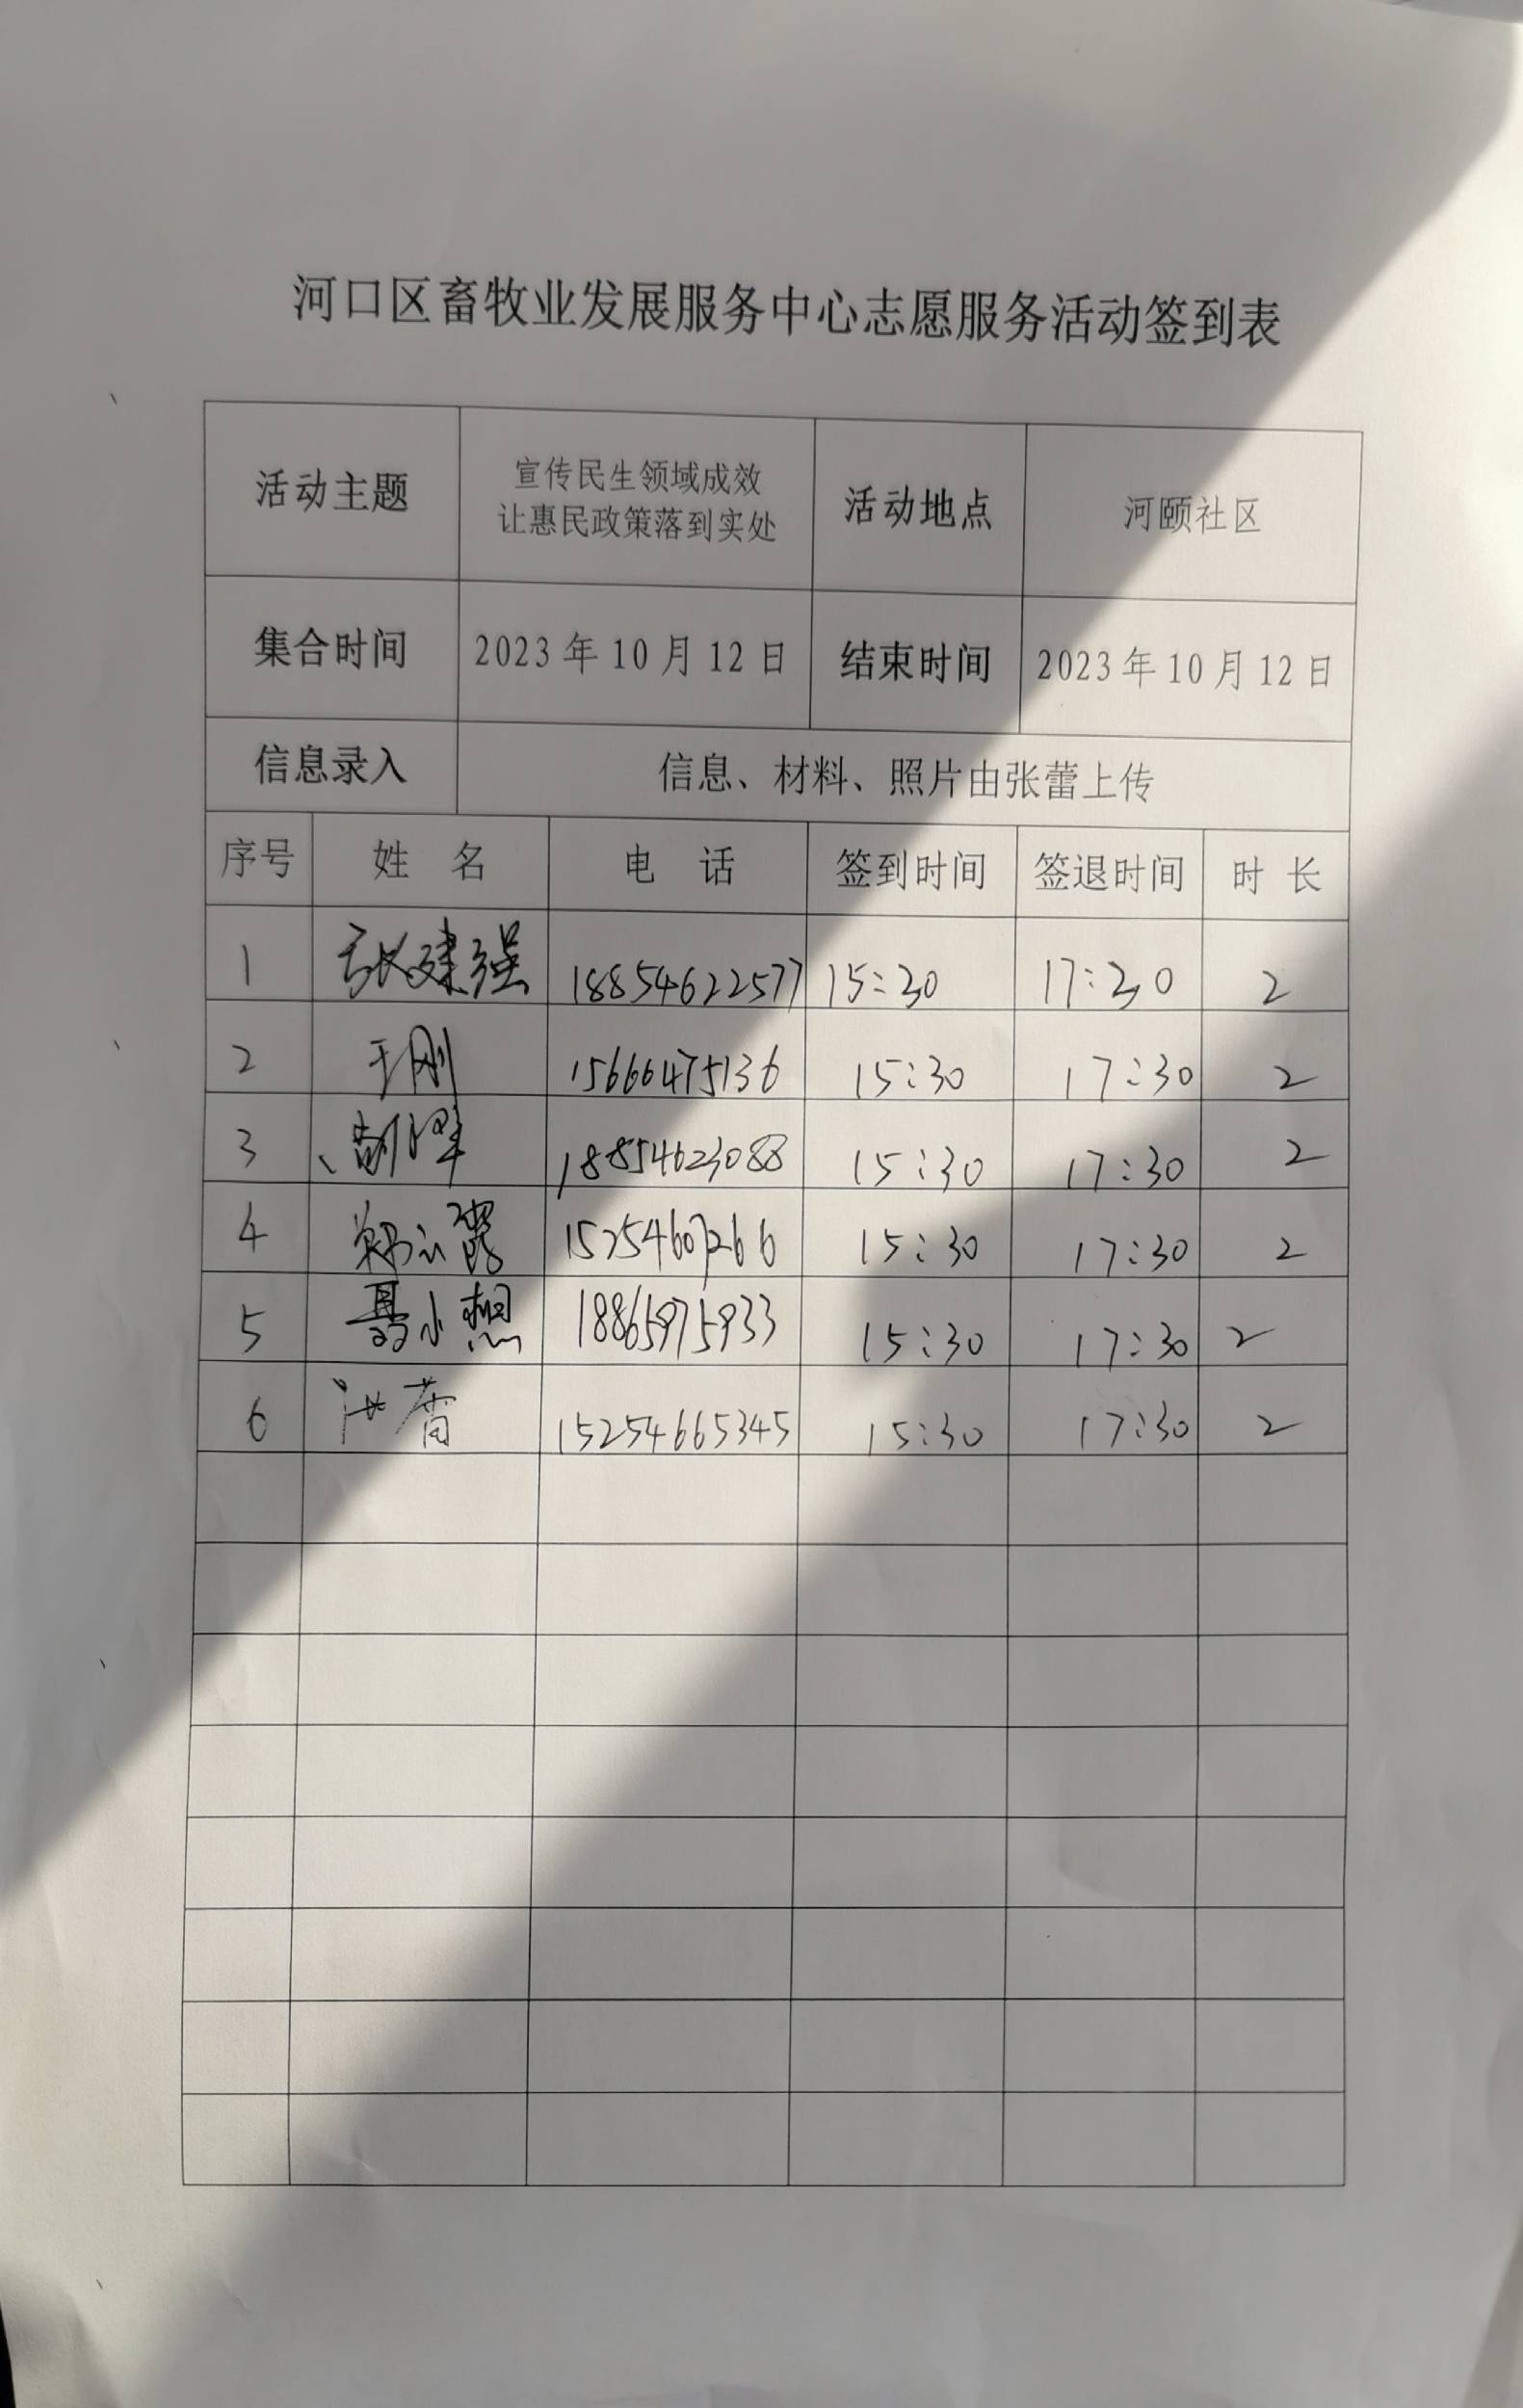 河口区畜牧业发展服务中心志愿服务活动签到表
活动主题 宣传民生领域成效 让惠民政策落到实处 活动地点 河颐社区
集合时间 2023年10月12日 结束时间 2023年10月12日
信息录入 信息、材料、照片由张蕾上传
序号 姓名 电话 签到时间 签退时间 时长
1 张建强 18854622577 15:30 17:30 2
2 于刚 15666475136 15:30 17:30 2
3 18854623088 15:30 17:30 2
4 15254607266 15:30 17:30 2
5 聂小想 18865975933 15:30 17:30 2
6 15254665345 15:30 17:30 2